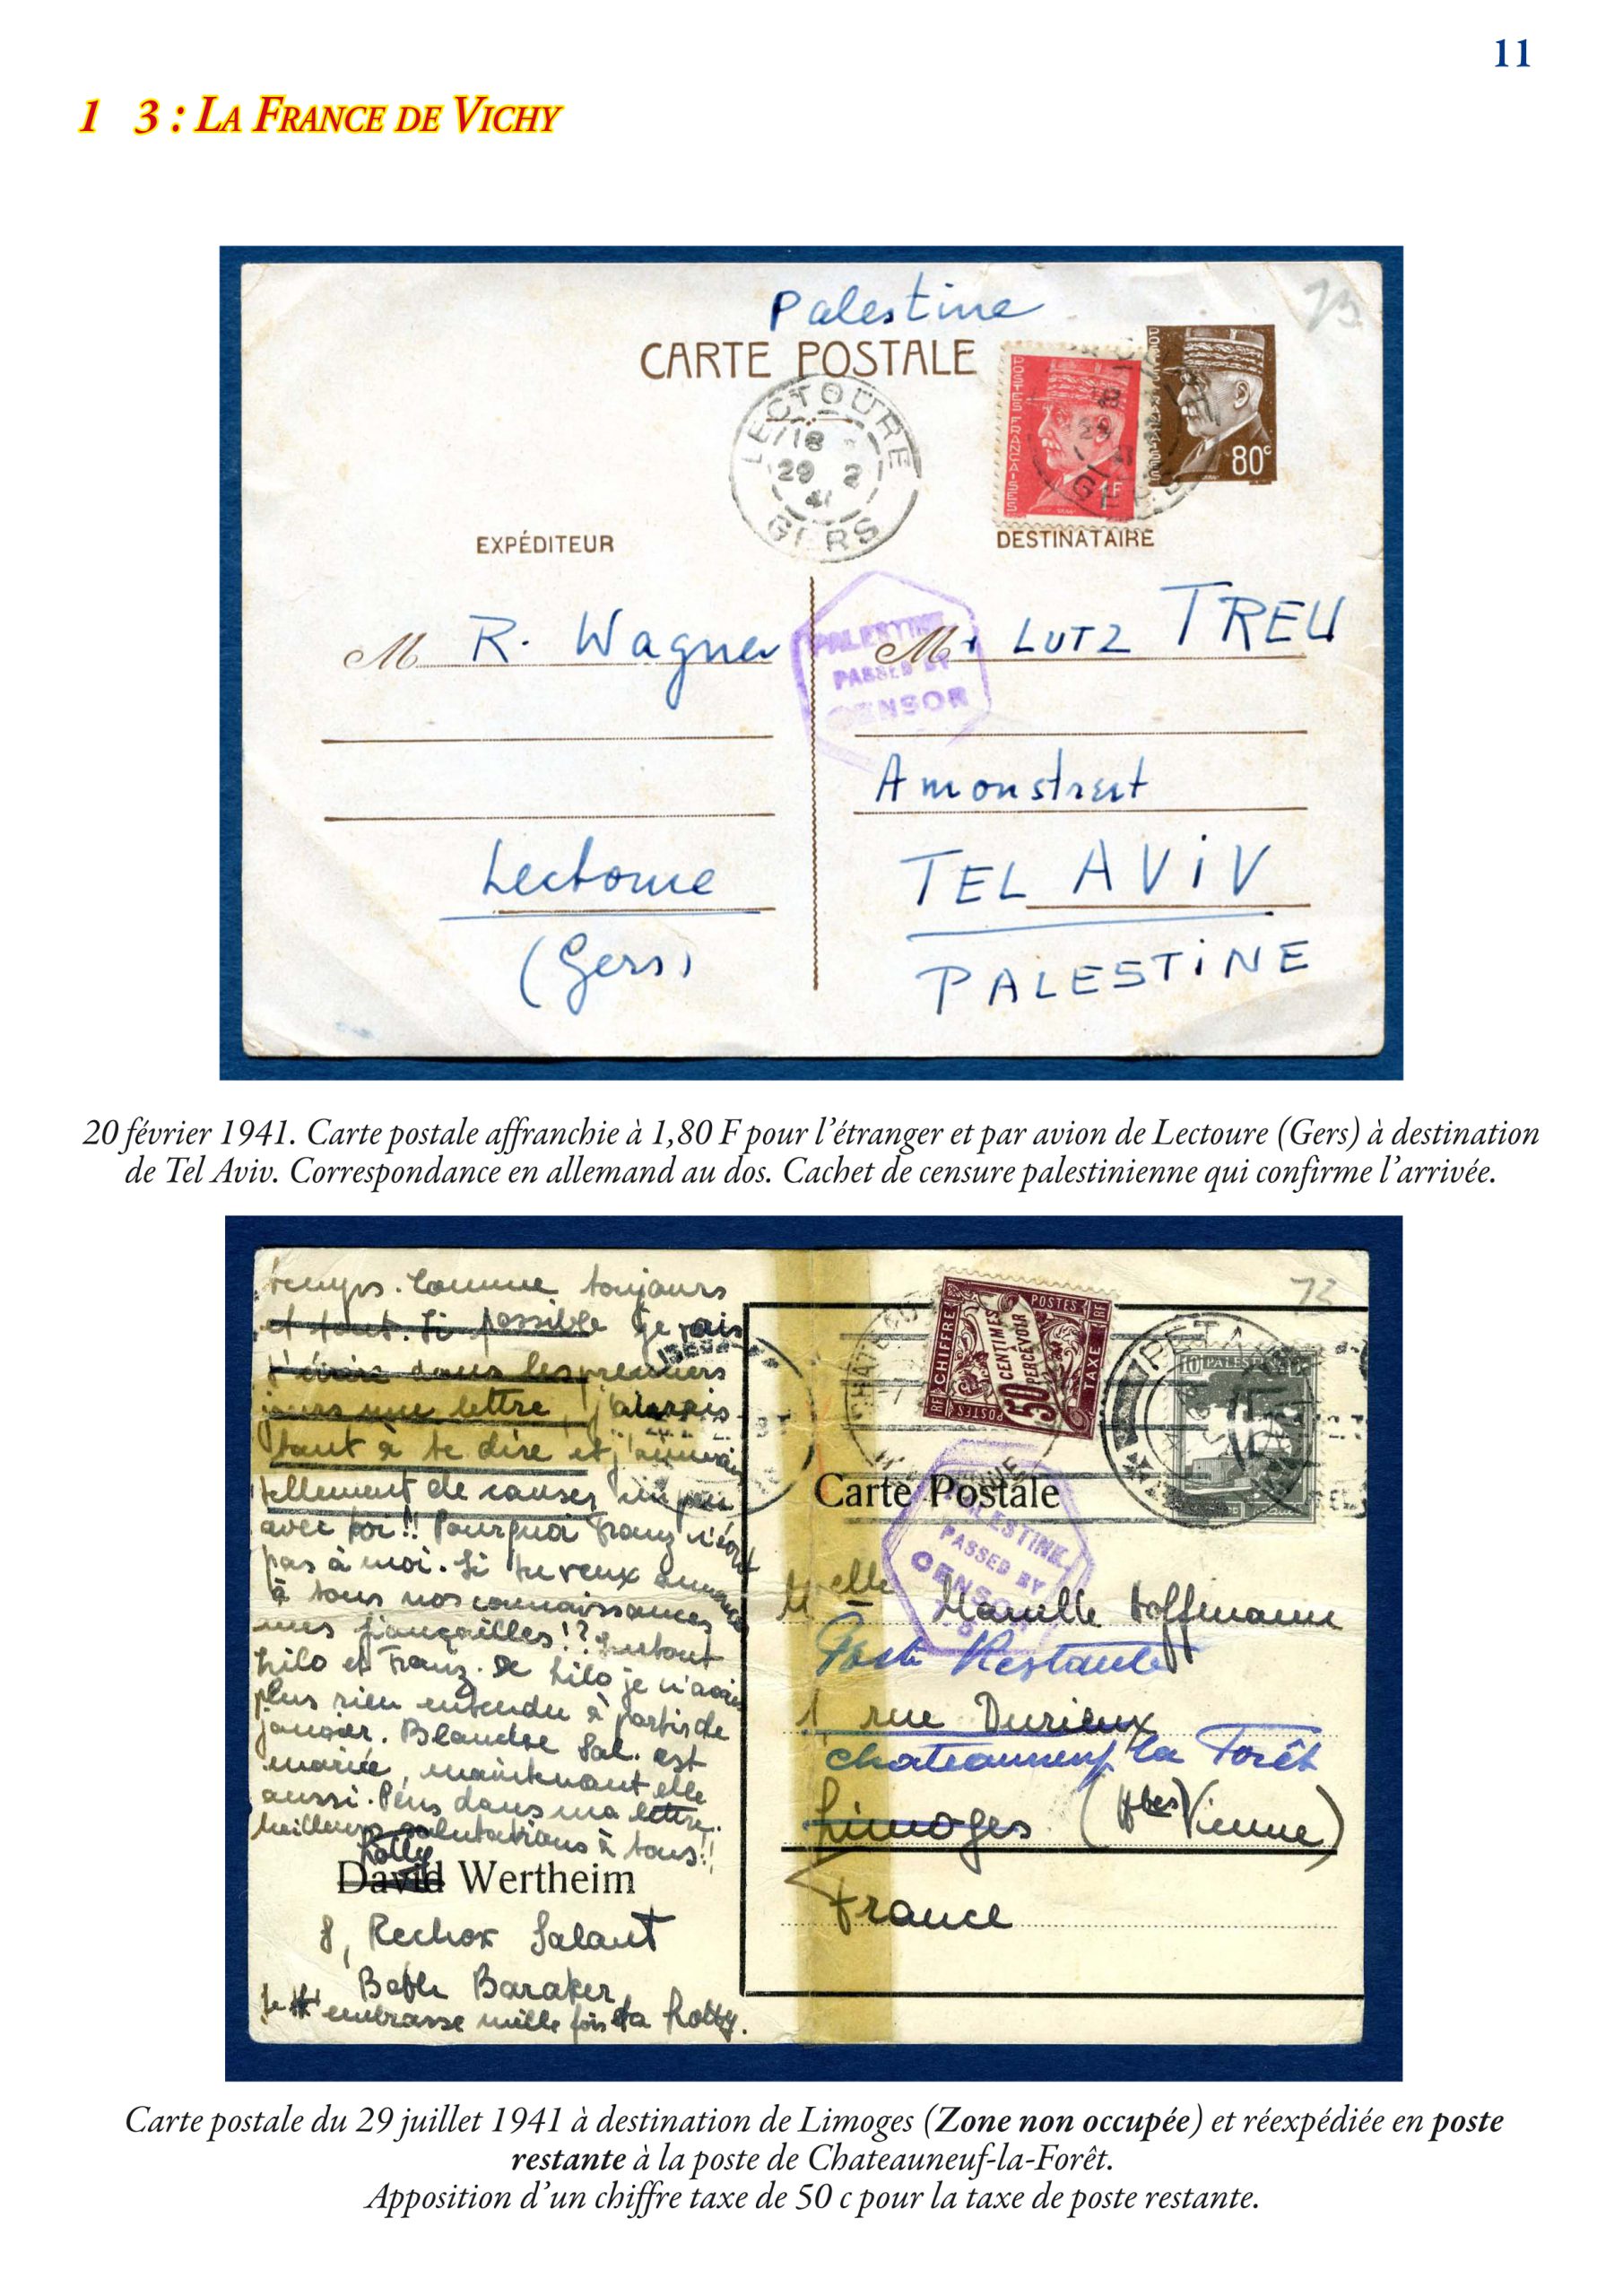 11
1 3 : La France de Vichy
Palestine
73
CARTE POSTALE
POSTES FRANÇAISES
1F
80c
LECTOURE
18
29 2
41
GERS
EXPÉDITEUR
DESTINATAIRE
M R. Wagner
Mr LUTZ TREU
PALESTINE
PASSED BY
CENSOR
Amonstreet
Lectoure
TEL AVIV
(Gers)
PALESTINE
20 février 1941. Carte postale affranchie à 1,80 F pour l'étranger et par avion de Lectoure (Gers) à destination
de Tel Aviv. Correspondance en allemand au dos. Cachet de censure palestinienne qui confirme l'arrivée.
temps. Comme toujours
et tout. Si possible je vais
t'écrire dans les premiers
jours une lettre, j'aurais
tant à te dire et j'aimerais
tellement de causer un peu
avec toi!! Pourquoi Franz n'écrit
pas à moi. Si tu veux annonce
à tous nos connaissances
mes fiançailles!? Surtout
Lilo et Franz. De Lilo je n'avais
plus rien entendu à partir de
janvier. Blandse Sal. est
mariée, maintenant elle
aussi. Plus dans ma lettre.
Meilleures salutations à tous!!
Lotty
David Wertheim
8, Rechov Salant
Batle Baraker
Je t'embrasse mille fois ta Lotty.
73
CHIFFRE
POSTES
TAXE
RF
50 CENTIMES
À PERCEVOIR
10 PALESTINE
Carte Postale
PALESTINE
PASSED BY
CENSOR
Melle Marelle Hoffmann
Poste Restante
1 rue Durieux
Chateauneuf la Forêt
Limoges (Htes Vienne)
France
Carte postale du 29 juillet 1941 à destination de Limoges (Zone non occupée) et réexpédiée en poste
restante à la poste de Chateauneuf-la-Forêt.
Apposition d'un chiffre taxe de 50 c pour la taxe de poste restante.